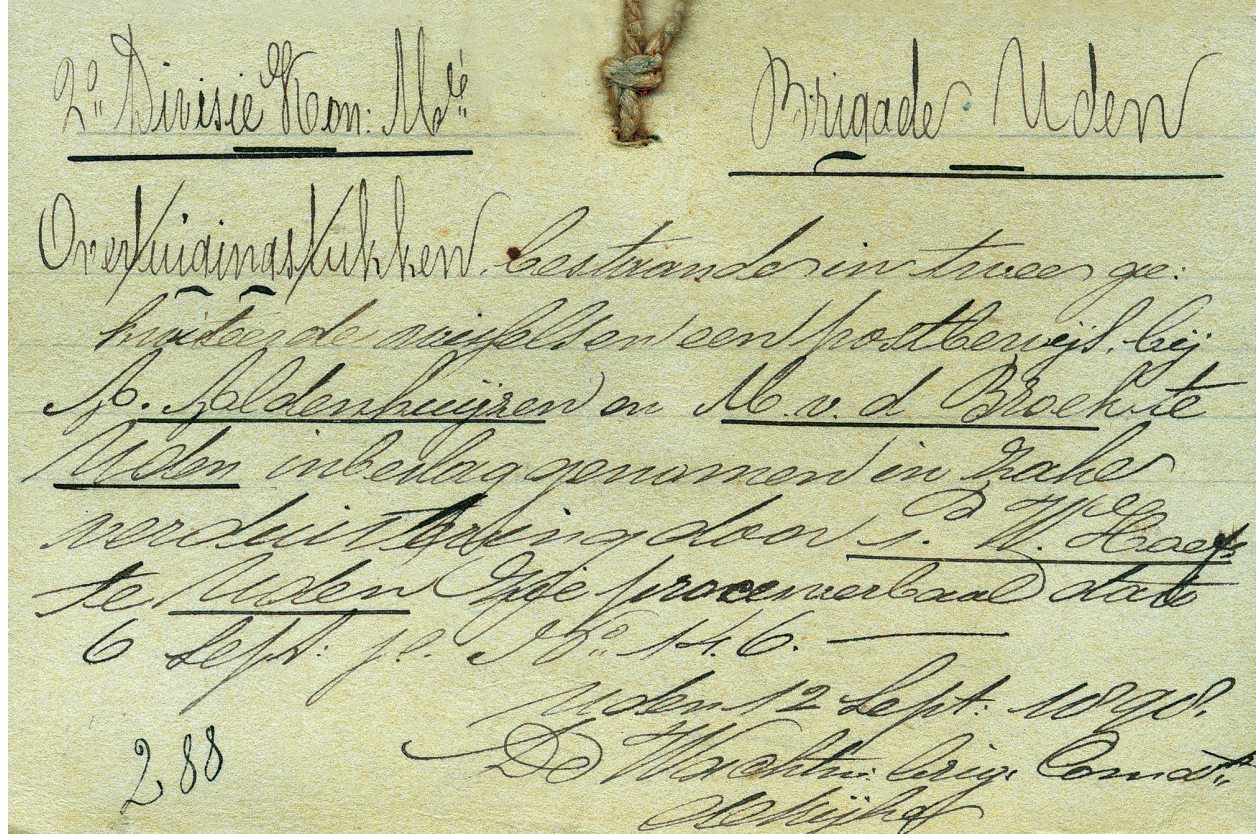 2e Divisie Kon: Mé
Brigade Uden
Overtuigingstukken, bestaande in twee ge:
kwiteerde wissels en een postbewijs, bij
A. Aldenhuijzen en M. v. d. Broek te
Uden inbeslaggenomen in zake
verduistering door P. W.
te Uden Zie procesverbaal dato
6 Sept: jl. No. 146.
Uden 12 Sept: 1898.
De Wachtm: brig: Comdt
288